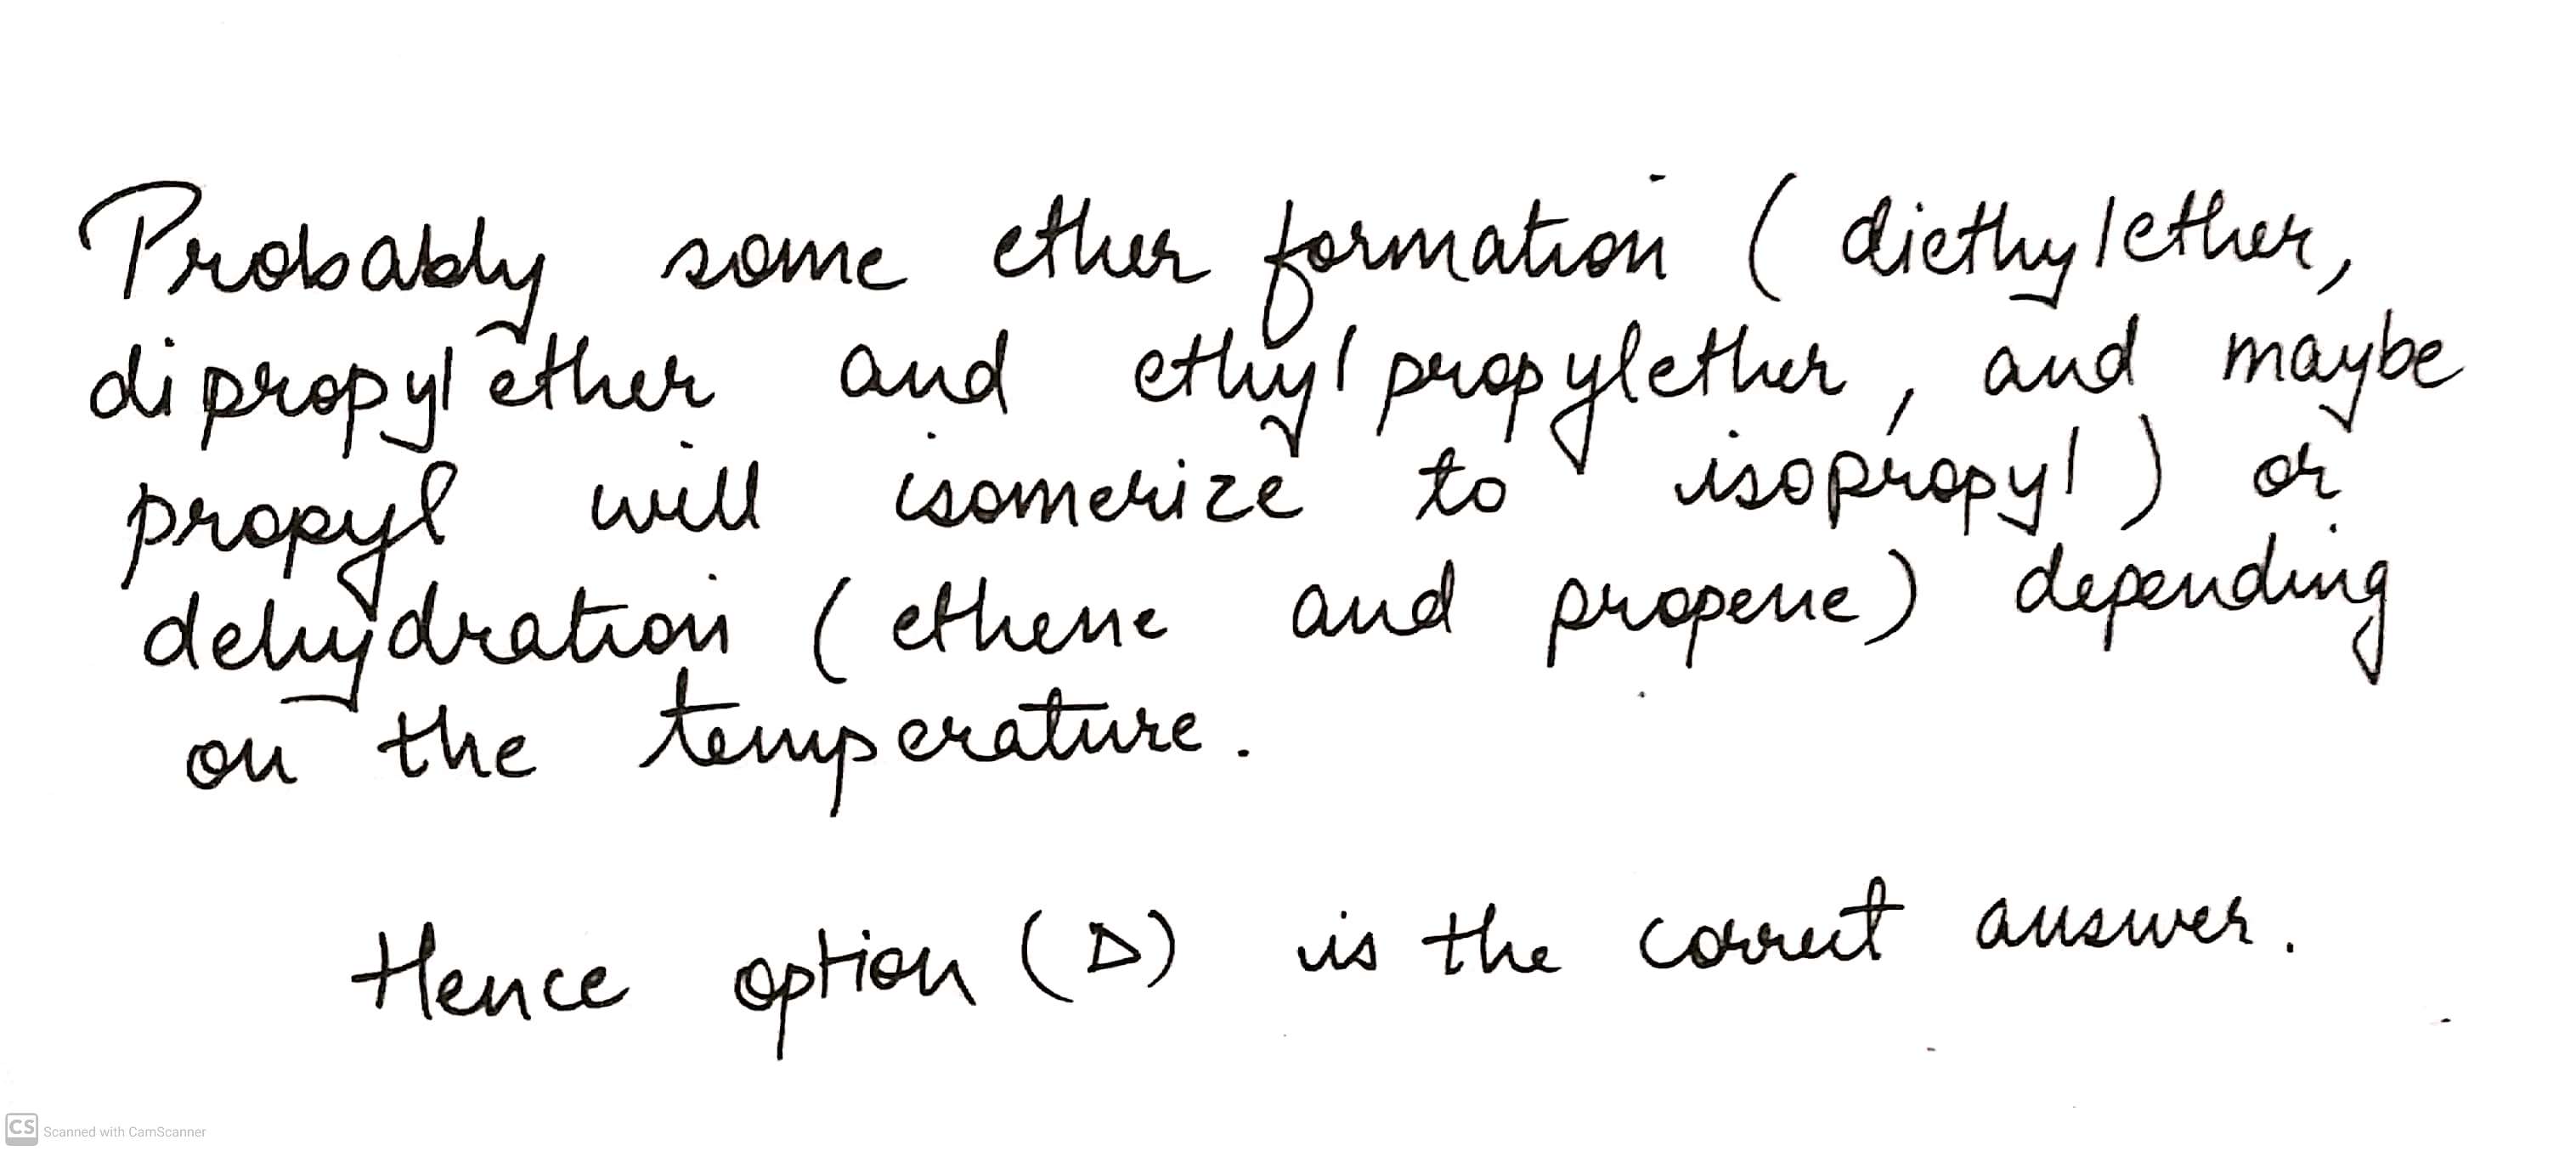 Probably some ether formation ( diethylether,
dipropylether and ethylpropylether, and maybe
propyl will isomerize to isopropyl ) or
dehydration ( ethene and propene) depending
on the temperature.
Hence option (D) is the correct answer.
CS Scanned with CamScanner